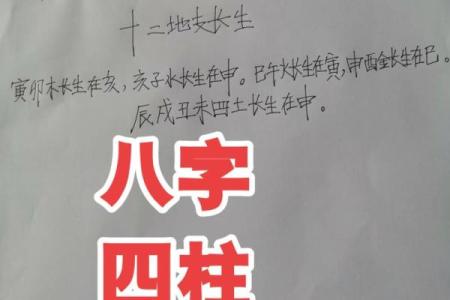 十二地支长生
寅卯木长生在亥，亥子水长生在申。巳午火长生在寅，申酉金长生在巳。
辰戌丑未四土长生在申。
八字
四柱